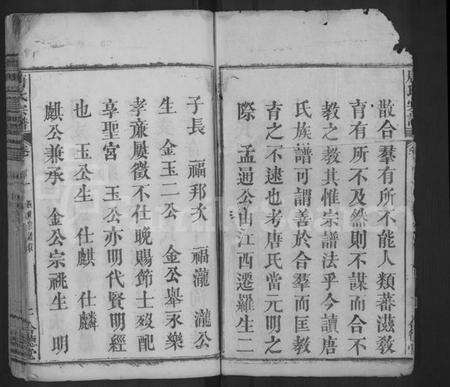 散合羣有所不能人類蕃滋敎
育有所不及然則不謀而合不
敎之敎其惟宗譜法乎今讀唐
氏族譜可謂善於合羣而匡敎
育之不逮也考唐氏當元明之
際 孟通公由江西遷羅生二
子長 福邦次 福瀧 瀧公
生 金玉二公 金公舉永樂
孝廉屢徵不仕晚賜節士歿配
享聖宮 玉公亦明代賢明經
也 玉公生 仕麒 仕麟
麒公兼承 金公宗祧生 明